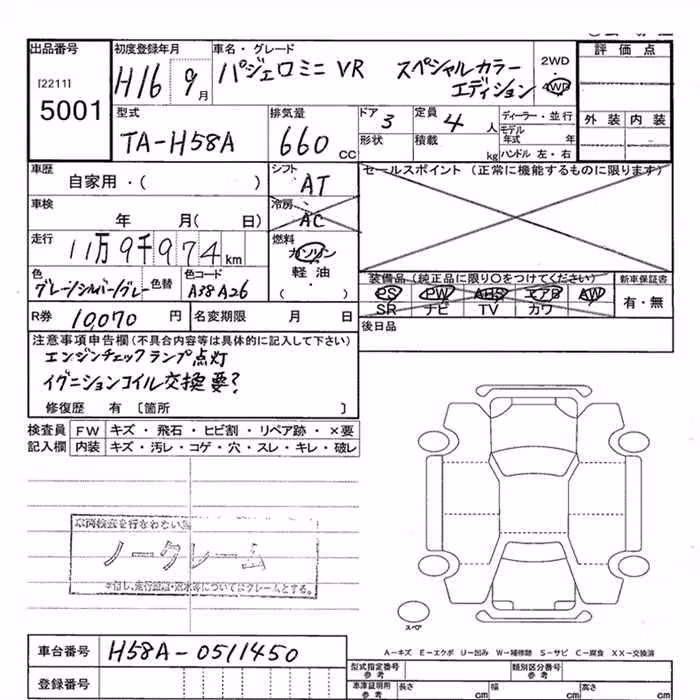 出品番号 初度登録年月 車名・グレード 評価点
[2211] 5001 H16 9月 パジェロミニ VR スペシャルカラー エディション 2WD 4WD
外装 内装
型式 排気量 ドア 3 定員 4人 ディーラー・並行
TA-H58A 660cc 形状 積載 kg モデル年式 年
ハンドル 左・右
車歴 シフト セールスポイント (正常に機能するものに限ります)
自家用・( ) AT
車検 冷房
年 月( 日) AC
走行 燃料
11万9千974km ガソリン
色 色替 色コード 軽油 装備品 (純正品に限り○をつけてください) 新車保証書
グレー/シルバー/グレー A38A26 ( ・ ) PS PW ABS エアB AW 有・無
SR ナビ TV カワ
R券 10,070円 名変期限 月 日 後日品
注意事項申告欄(不具合内容等は具体的に記入して下さい)
エンジンチェックランプ点灯
イグニションコイル交換要?
修復歴 有 [箇所 ]
検査員 FW キズ・飛石・ヒビ割・リペア跡・×要
記入欄 内装 キズ・汚レ・コゲ・穴・スレ・キレ・破レ
車両検査を行わない為
ノークレーム
*但し、走行距離・冠水等についてはクレームとする。
スペア
A-キズ E-エクボ U-凹み W-補修跡 S-サビ C-腐食 XX-交換済
車台番号 H58A-0511450
型式指定番号 参考 類別区分番号 参考
登録番号 車庫証明用 参考 長さ cm 幅 cm 高さ cm